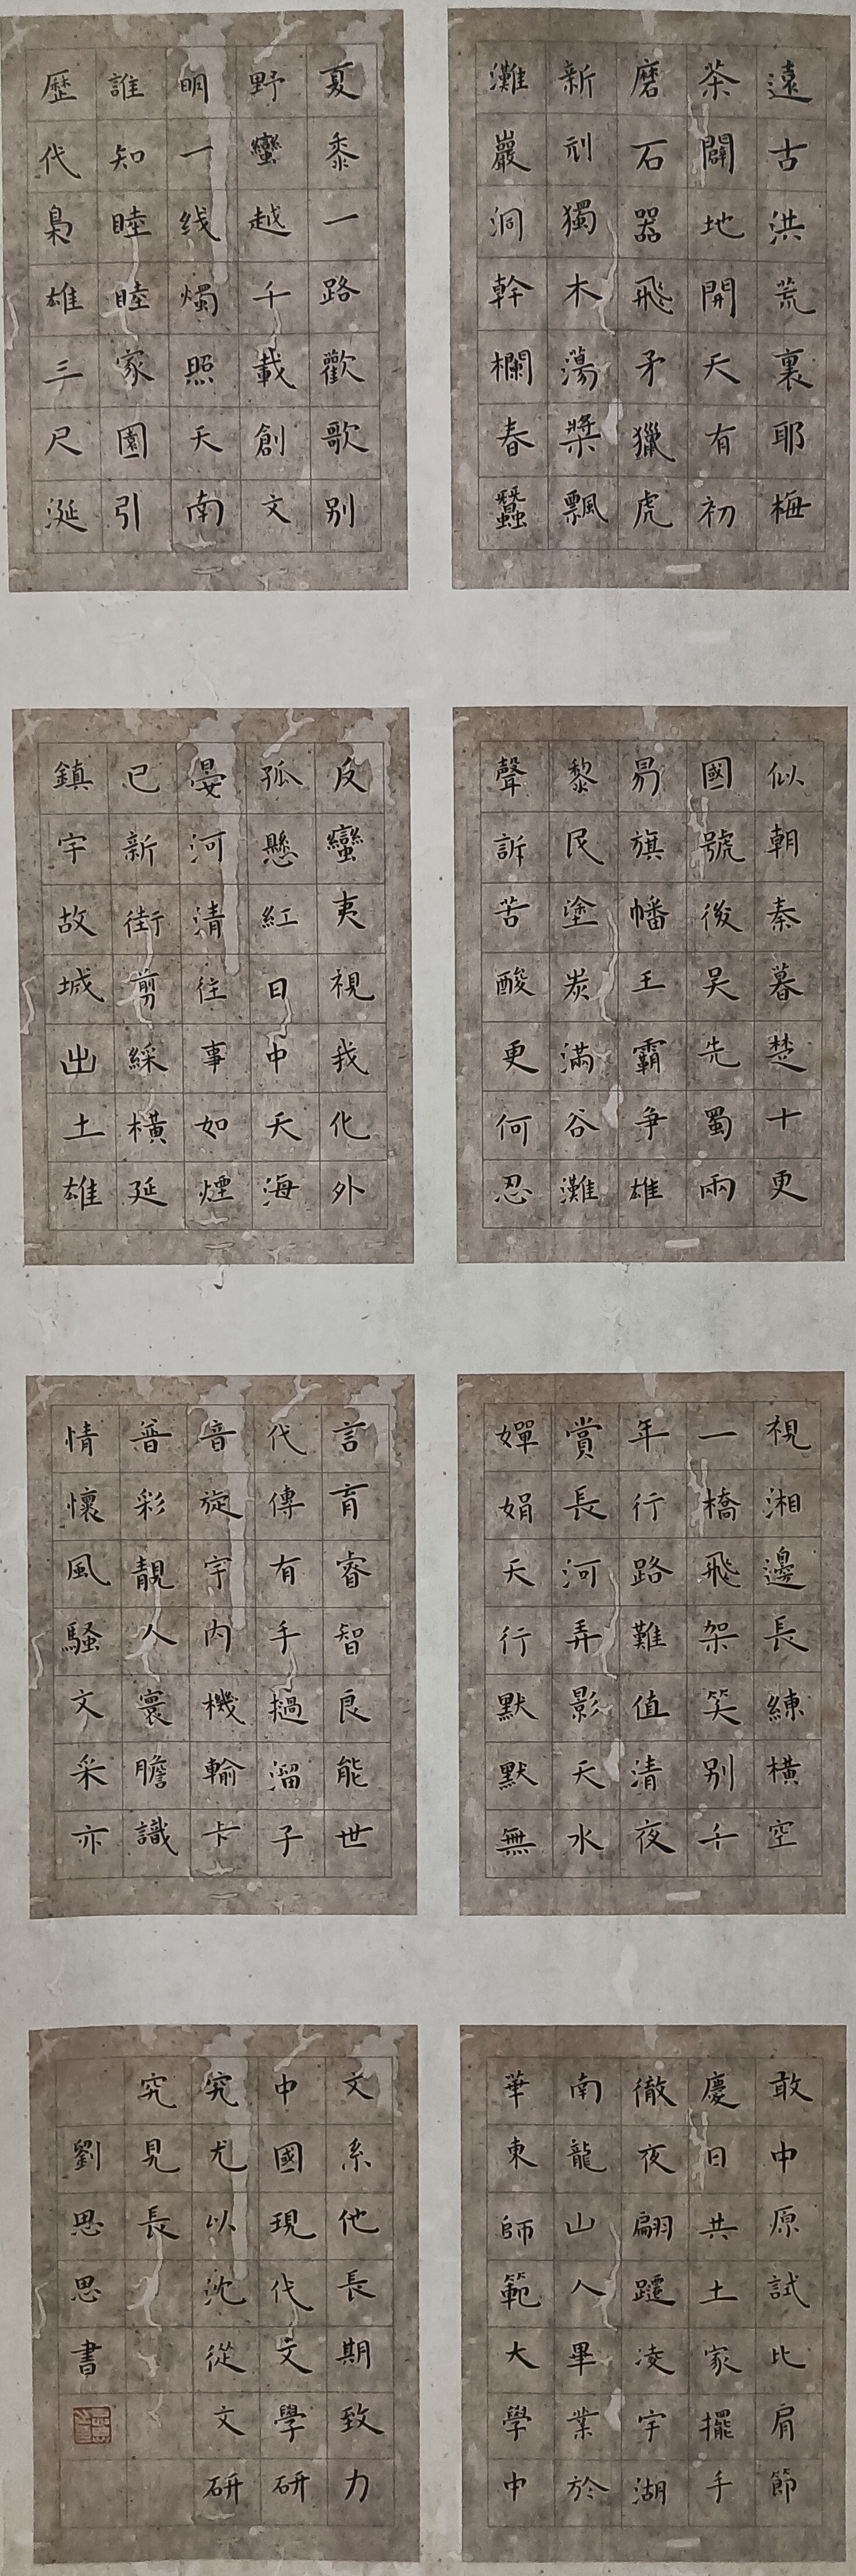 遠古洪荒裏耶梅
茶闢地開天有初
磨石器飛矛獵虎
新刳獨木蕩槳飄
灘巖洞幹欄春蠶
夏黍一路歡歌别
野蠻越千載創文
明一线燭照天南
誰知睦睦家園引
歷代梟雄三尺涎
似朝秦暮楚十更
國號後吴先蜀兩
易旗幡王霸争雄
黎民塗炭滿谷灘
聲訴苦酸更何忍
反蠻夷視我化外
孤懸紅日中天海
晏河清往事如煙
已新街剪綵横延
鎮宇故城出土雄
視湘邊長練横空
一橋飛架笑别千
年行路難值清夜
賞長河弄影天水
嬋娟天行默默無
言育睿智良能世
代傳有手撾溜子
音旋宇内機輸卡
普彩靚人寰膽識
情懷風騷文采亦
敢中原試比肩節
慶日共土家擺手
徹夜翩躚凌宇湖
南龍山人畢業於
華東師範大學中
文系他長期致力
中國現代文學研
究尤以沈從文研
究見長
劉思思書